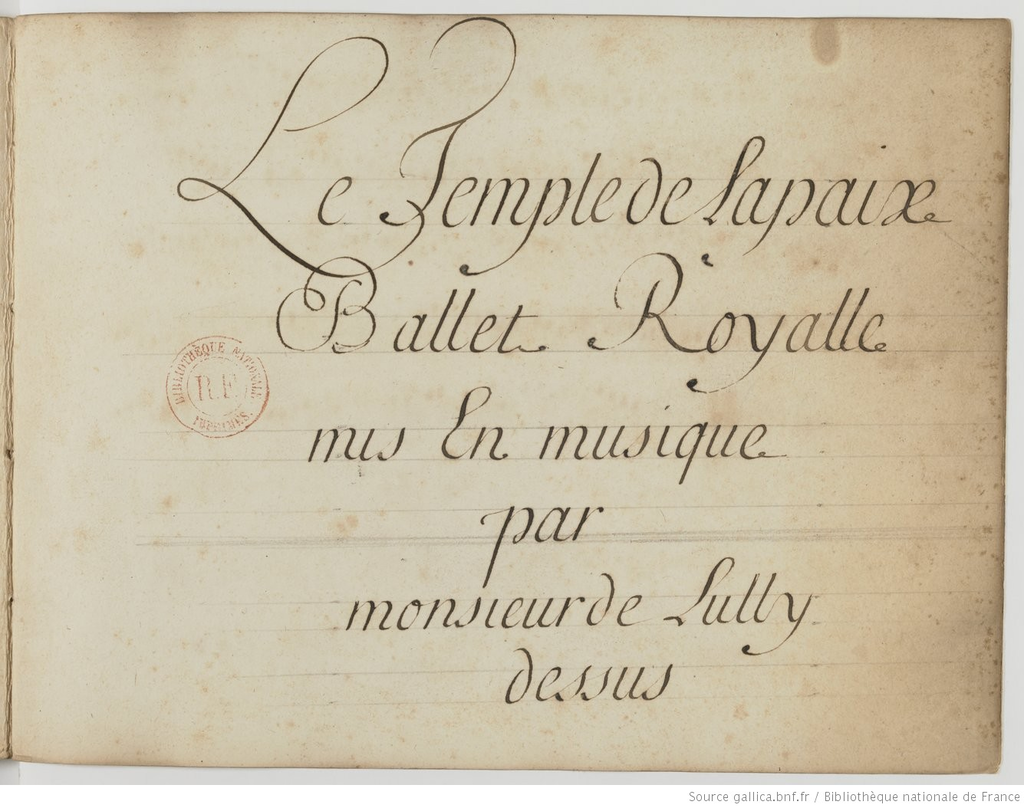 Le Temple de Lapaix
Ballet Royalle
mis En musique
par
monsieur de Lully
dessus
BIBLIOTHÈQUE NATIONALE
R.F.
IMPRIMÉS.
Source gallica.bnf.fr / Bibliothèque nationale de France